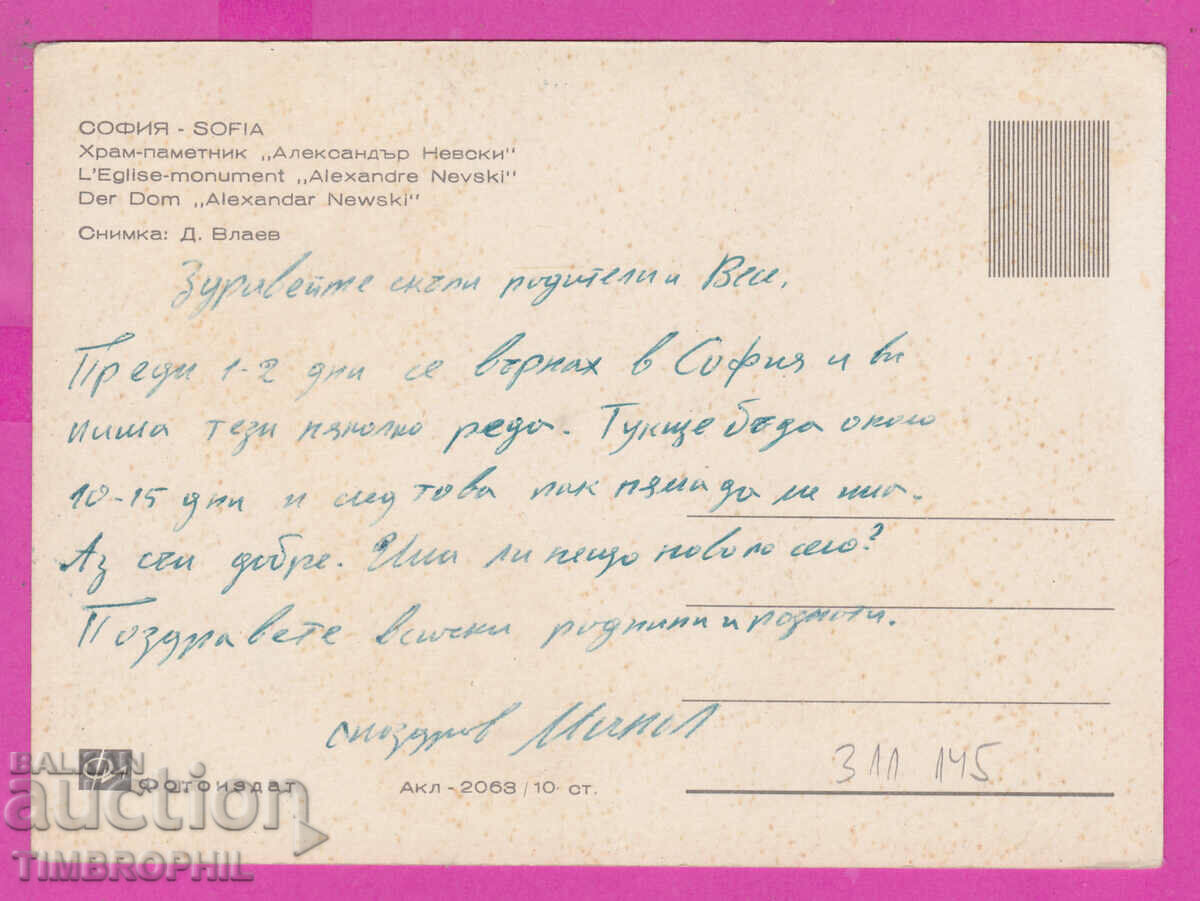 СОФИЯ - SOFIA
Храм-паметник „Александър Невски"
L'Eglise-monument „Alexandre Nevski"
Der Dom „Alexandar Newski"
Снимка: Д. Влаев
Здравейте скъпи родители и Веси,
Преди 1-2 дни се върнах в София и ви
пиша тези няколко реда. Тук ще бъда около
10-15 дни и след това пак няма да ме има.
Аз съм добре. Има ли нещо ново по село?
Поздравете всички роднини и познати.
с поздрав
311 145
Фотоиздат
Акл - 2063/10 ст.
BALKAN
auction
TIMBROPHIL